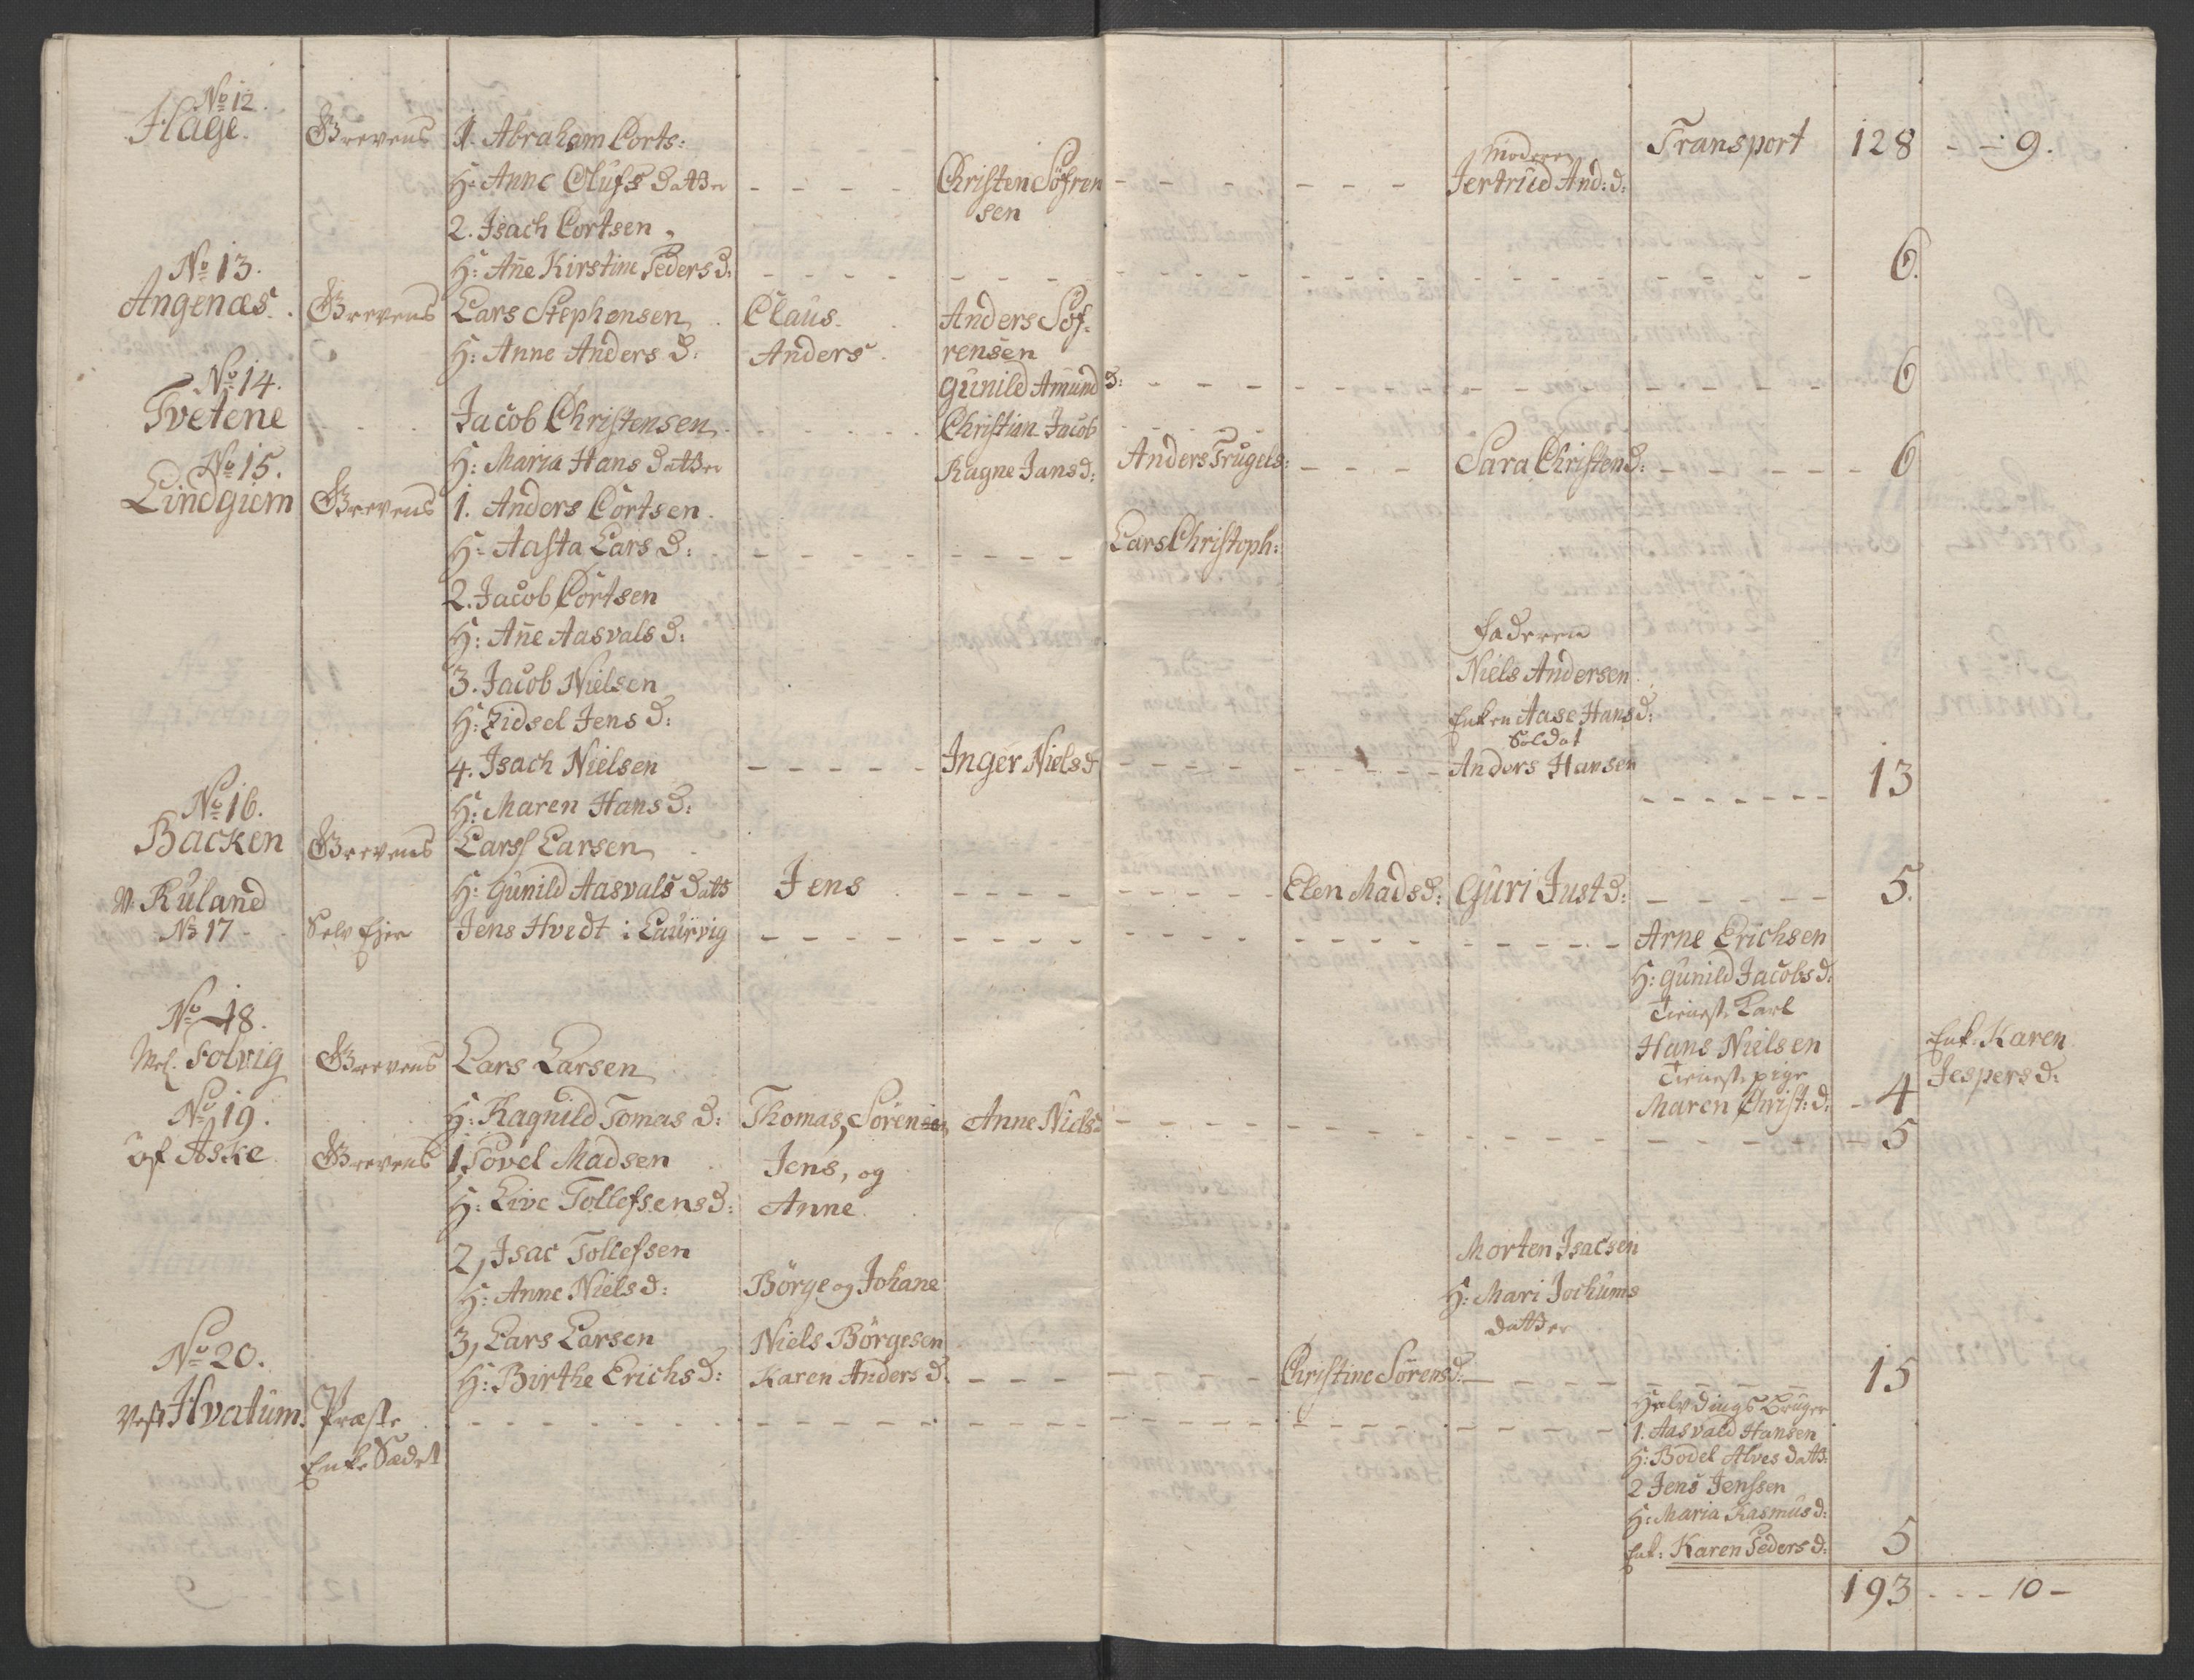 No 12.
Hage. Grevens 1. Abraham Corts: Transport 128 - - 9.
Moderen
H: Anne Olufs Datter - - - - Christen Söfren - - - - - - Jertrud And: d:
sen
2. Isach Cortsen
No 13. H: Añe Kirstine Peders d: - - - - 6.
Angenæs. Grevens Lars Stephensen Claus. Anders Söf-
H: Anne Anders d: Anders. rensen
No 14. Gunild Amund d: - - - - 6
Tvetene - - - Jacob Christensen - - - - Christian Jacob
No 15. H: Maria Hans Datter Ragne Jans d: Anders Trugels: - - - Sara Christen d: - - - - 6
Lindgiem Grevens 1. Anders Cortsen
H: Aasta Lars d: - - - - Lars Christoph:
2. Jacob Cortsen
H: Añe Aasvals d: Faderen
3. Jacob Nielsen Niels Andersen
H: Zidsel Jens d: Enken Aase Hans d:
Soldat
4. Isach Nielsen - - - - Inger Niels d - - - - Anders Hansen
No 16. H: Maren Hans d: - - - - 13
Backen Grevens Lars Larsen
N. Ruland H: Gunild Aasvals Datt Jens - - - - Elen Mads d: Guri Just d: - - - - 5.
No 17 - Selv Ejer Jens Hvedt i Laurvig - - - - Arne Erichsen
H: Gunild Jacobs d:
No 18. Tieneste Karl
Mel. Solvig Grevens Lars Larsen Hans Nielsen Enk: Karen
Tieneste pige Jespers d:
No 19. H: Ragnild Tomas d: Thomas, Sören Anne Niels d Maren Christ: d: - 4
öf Aske Grevens 1, Povel Madsen Jens, og - - - - 5
H: Live Tollefsens d: Anne
2, Isac Tollefsen Morten Isacsen
H: Anne Niels d: Börge og Johane H: Mari Jochums
datter
3, Lars Larsen Niels Börgesen
No 20. H: Birthe Erichs d: Karen Anders d. - - - - Christine Sörens d: - - - - 15
Vest Hvatum. Præste - - - - Halvdings Bruger
Enke Sædet 1. Aasvald Hansen
H: Bodel Alves datt:
2 Jens Jenssen
H: Maria Rasmus d:
Enk: Karen Peders d: 5
193 - - - 10 -